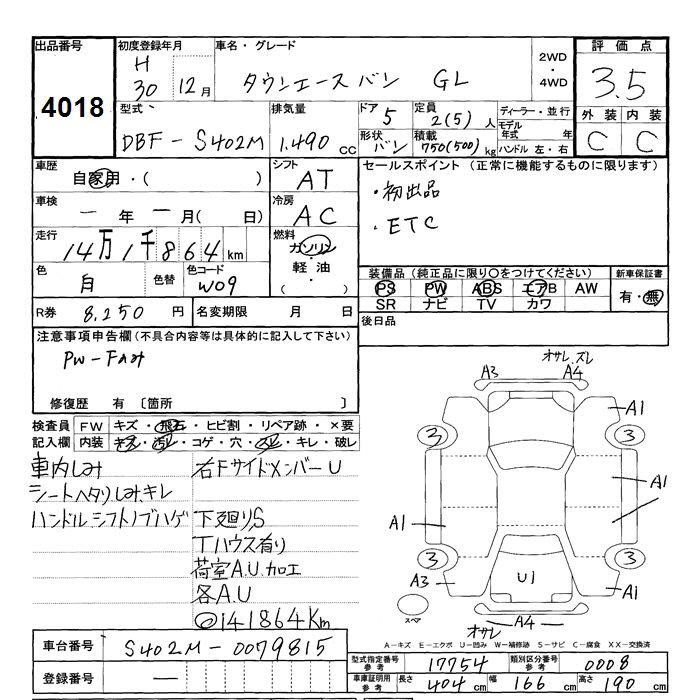 出品番号
4018
初度登録年月
H
30 12月
車名・グレード
タウンエースバン GL
2WD
・
4WD
評価点
3.5
外装 内装
C C
型式
DBF-S402M
排気量
1.490 cc
ドア
5
定員
2(5)人
形状
バン
積載
750(500)kg
ディーラー・並行
モデル
年式 年
ハンドル 左・右
車歴
自家用・( )
シフト
AT
セールスポイント(正常に機能するものに限ります)
・初出品
・ETC
車検
一年一月( 日)
冷房
AC
走行
14万1千864km
燃料
ガソリン
・
軽油
( )
色
白
色替
色コード
W09
装備品(純正品に限り○をつけてください)
PS PW ABS エアB AW
SR ナビ TV カワ
新車保証書
有・無
R券 8,250円
名変期限 月 日
後日品
注意事項申告欄(不具合内容等は具体的に記入して下さい)
修復歴 有 〔箇所 〕
検査員
記入欄
FW キズ・飛石・ヒビ割・リペア跡・×要
内装 キズ・汚レ・コゲ・穴・スレ・キレ・破レ
車内しみ
シートヘタりしみ、キレ
ハンドル、シフトノブハゲ
右FサイドメンバーU
下廻りS
Tハウス有り
荷室A.U.加工
各A.U
◎141864Km
オサレ、ズレ
A3 A4
A1
3 3
A1
A1
3 3
A3 A1
U1
スペア
A4
オサレ
A-キズ E-エクボ U-凹み W-補修跡 S-サビ C-腐食 XX-交換済
車台番号 S402M-0079815
登録番号 一
型式指定番号
参考
17754
類別区分番号
参考
0008
車庫証明用
参考
長さ 404cm 幅 166cm 高さ 190cm